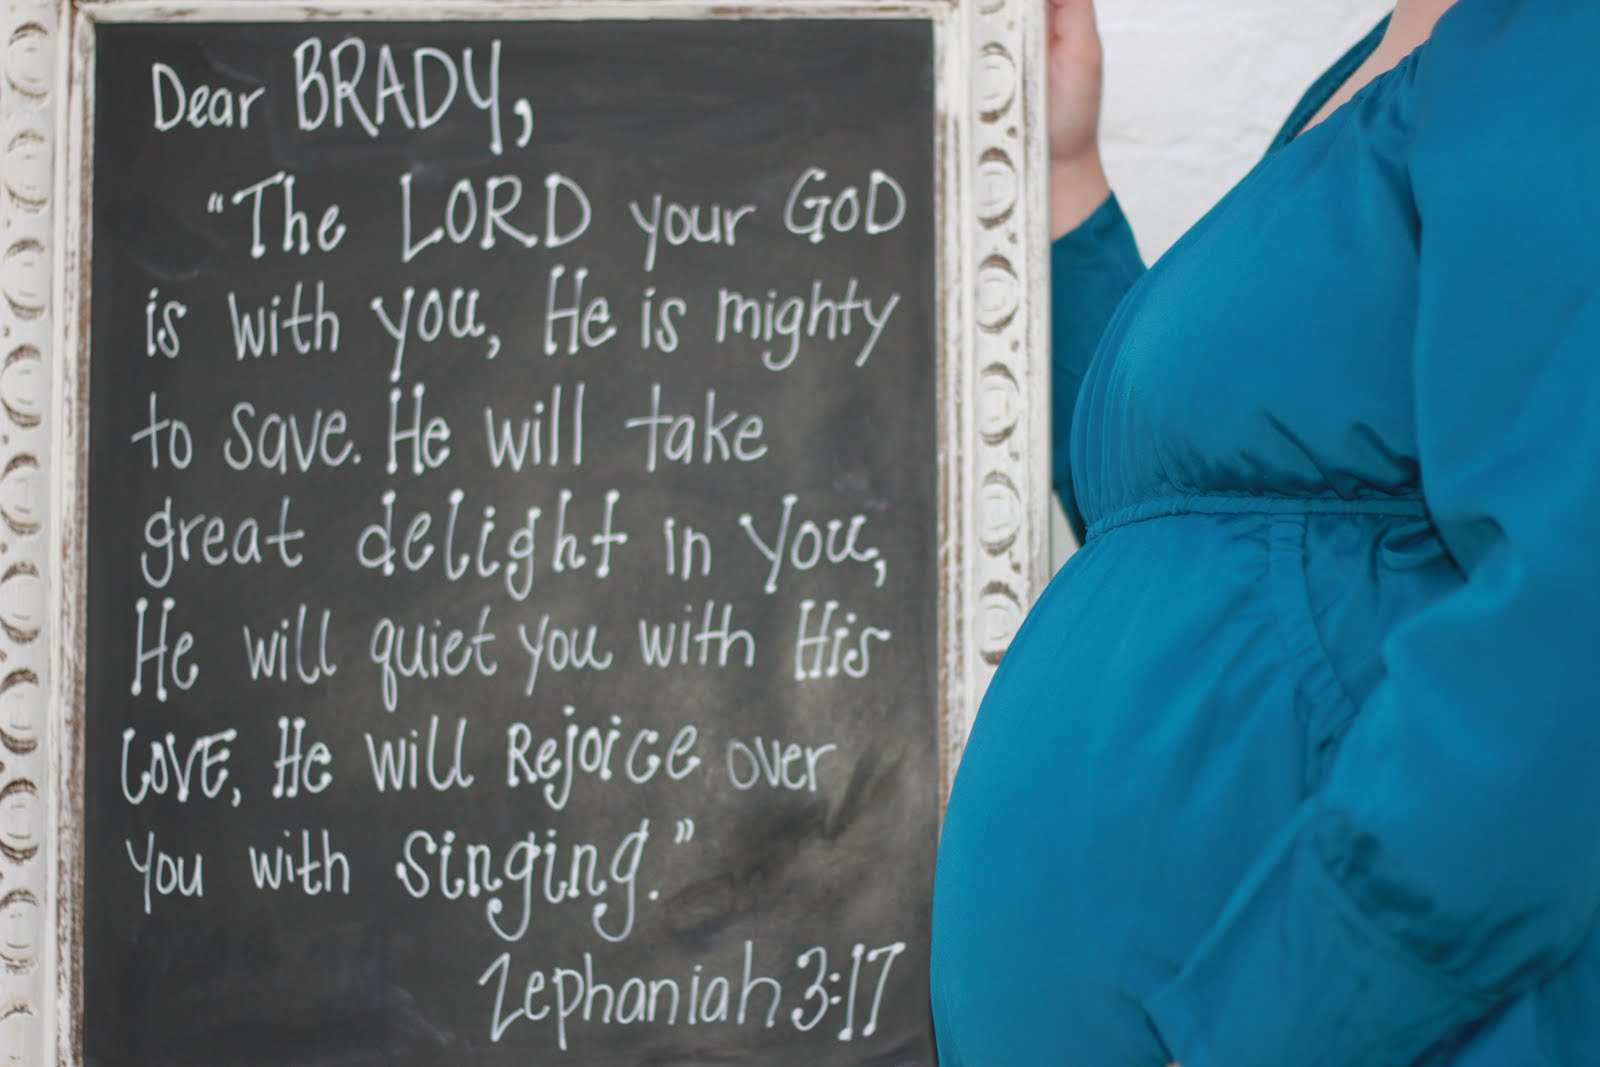 Dear BRADY,
"The LORD your GOD
is with you, He is mighty
to save. He will take
great delight in you,
He will quiet you with His
LOVE, He will Rejoice over
you with singing."
Zephaniah 3:17